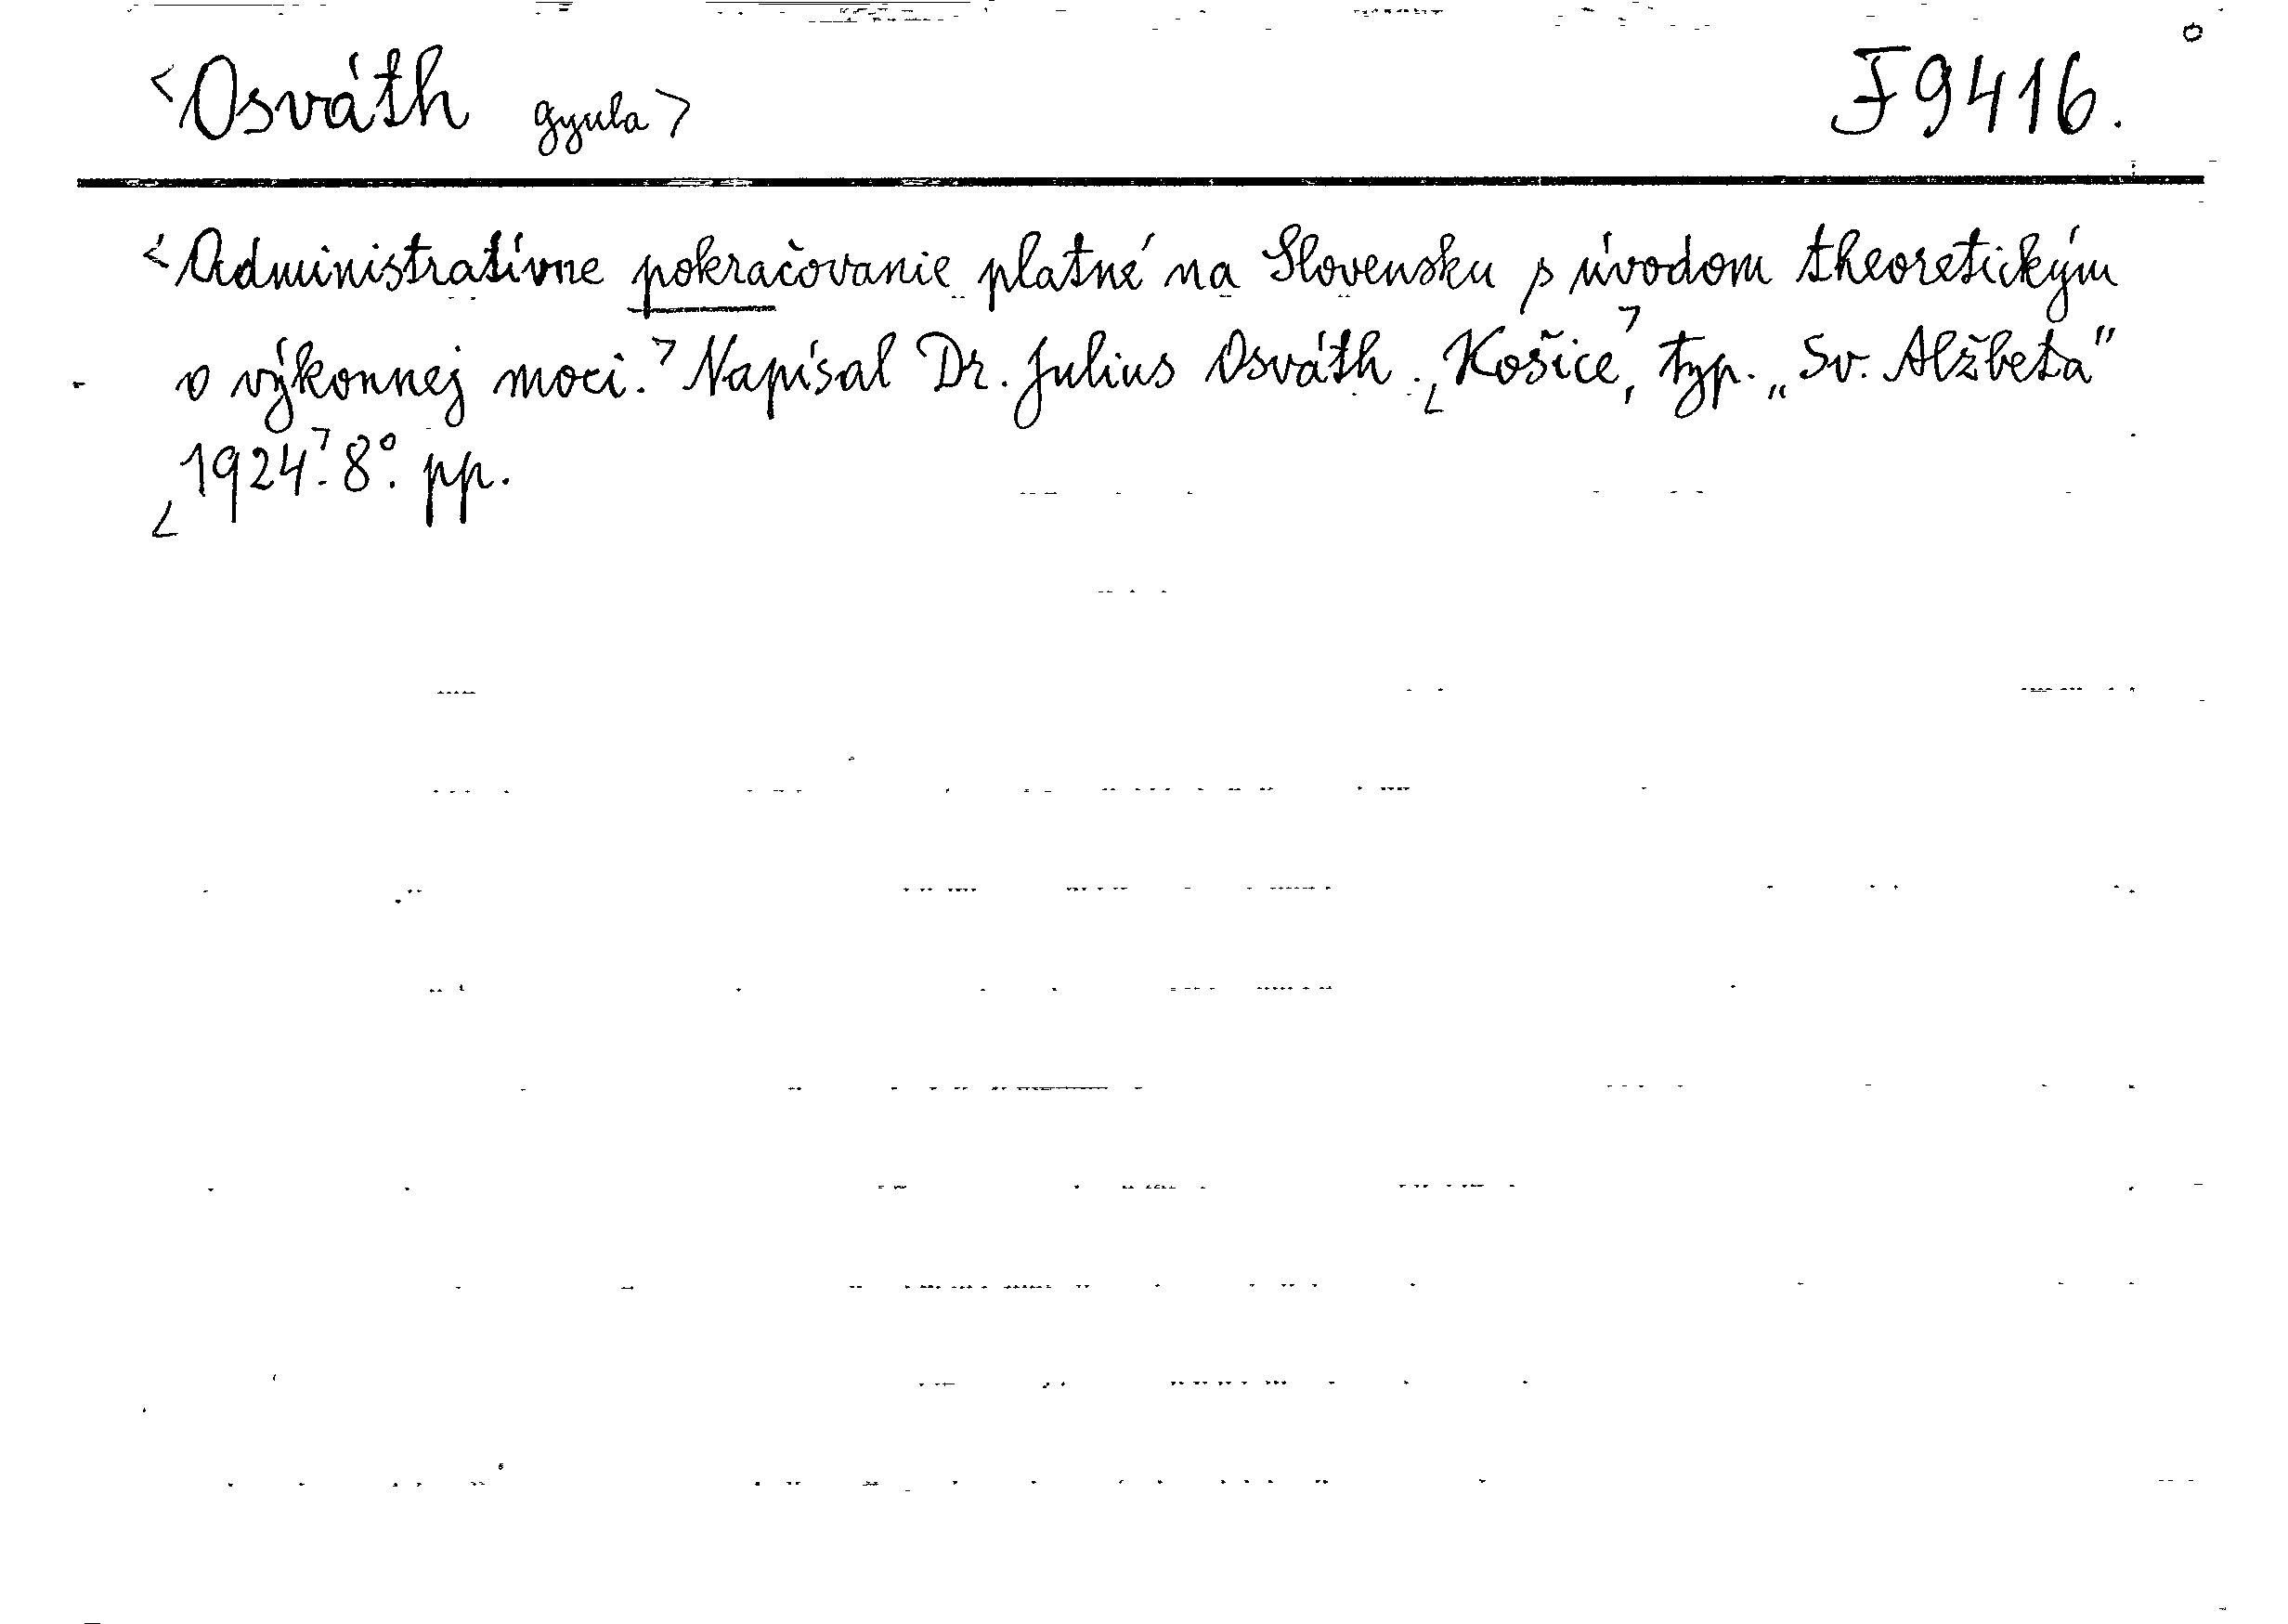 <Osváth Gyula> F9416.
<Administratívne pokračovanie platné na Slovensku s úvodom theoretickým
o výkonnej moci.> Napísal Dr. Julius Osváth. <Košice>, typ. „Sv. Alžbeta"
<1924>. 8°. pp.